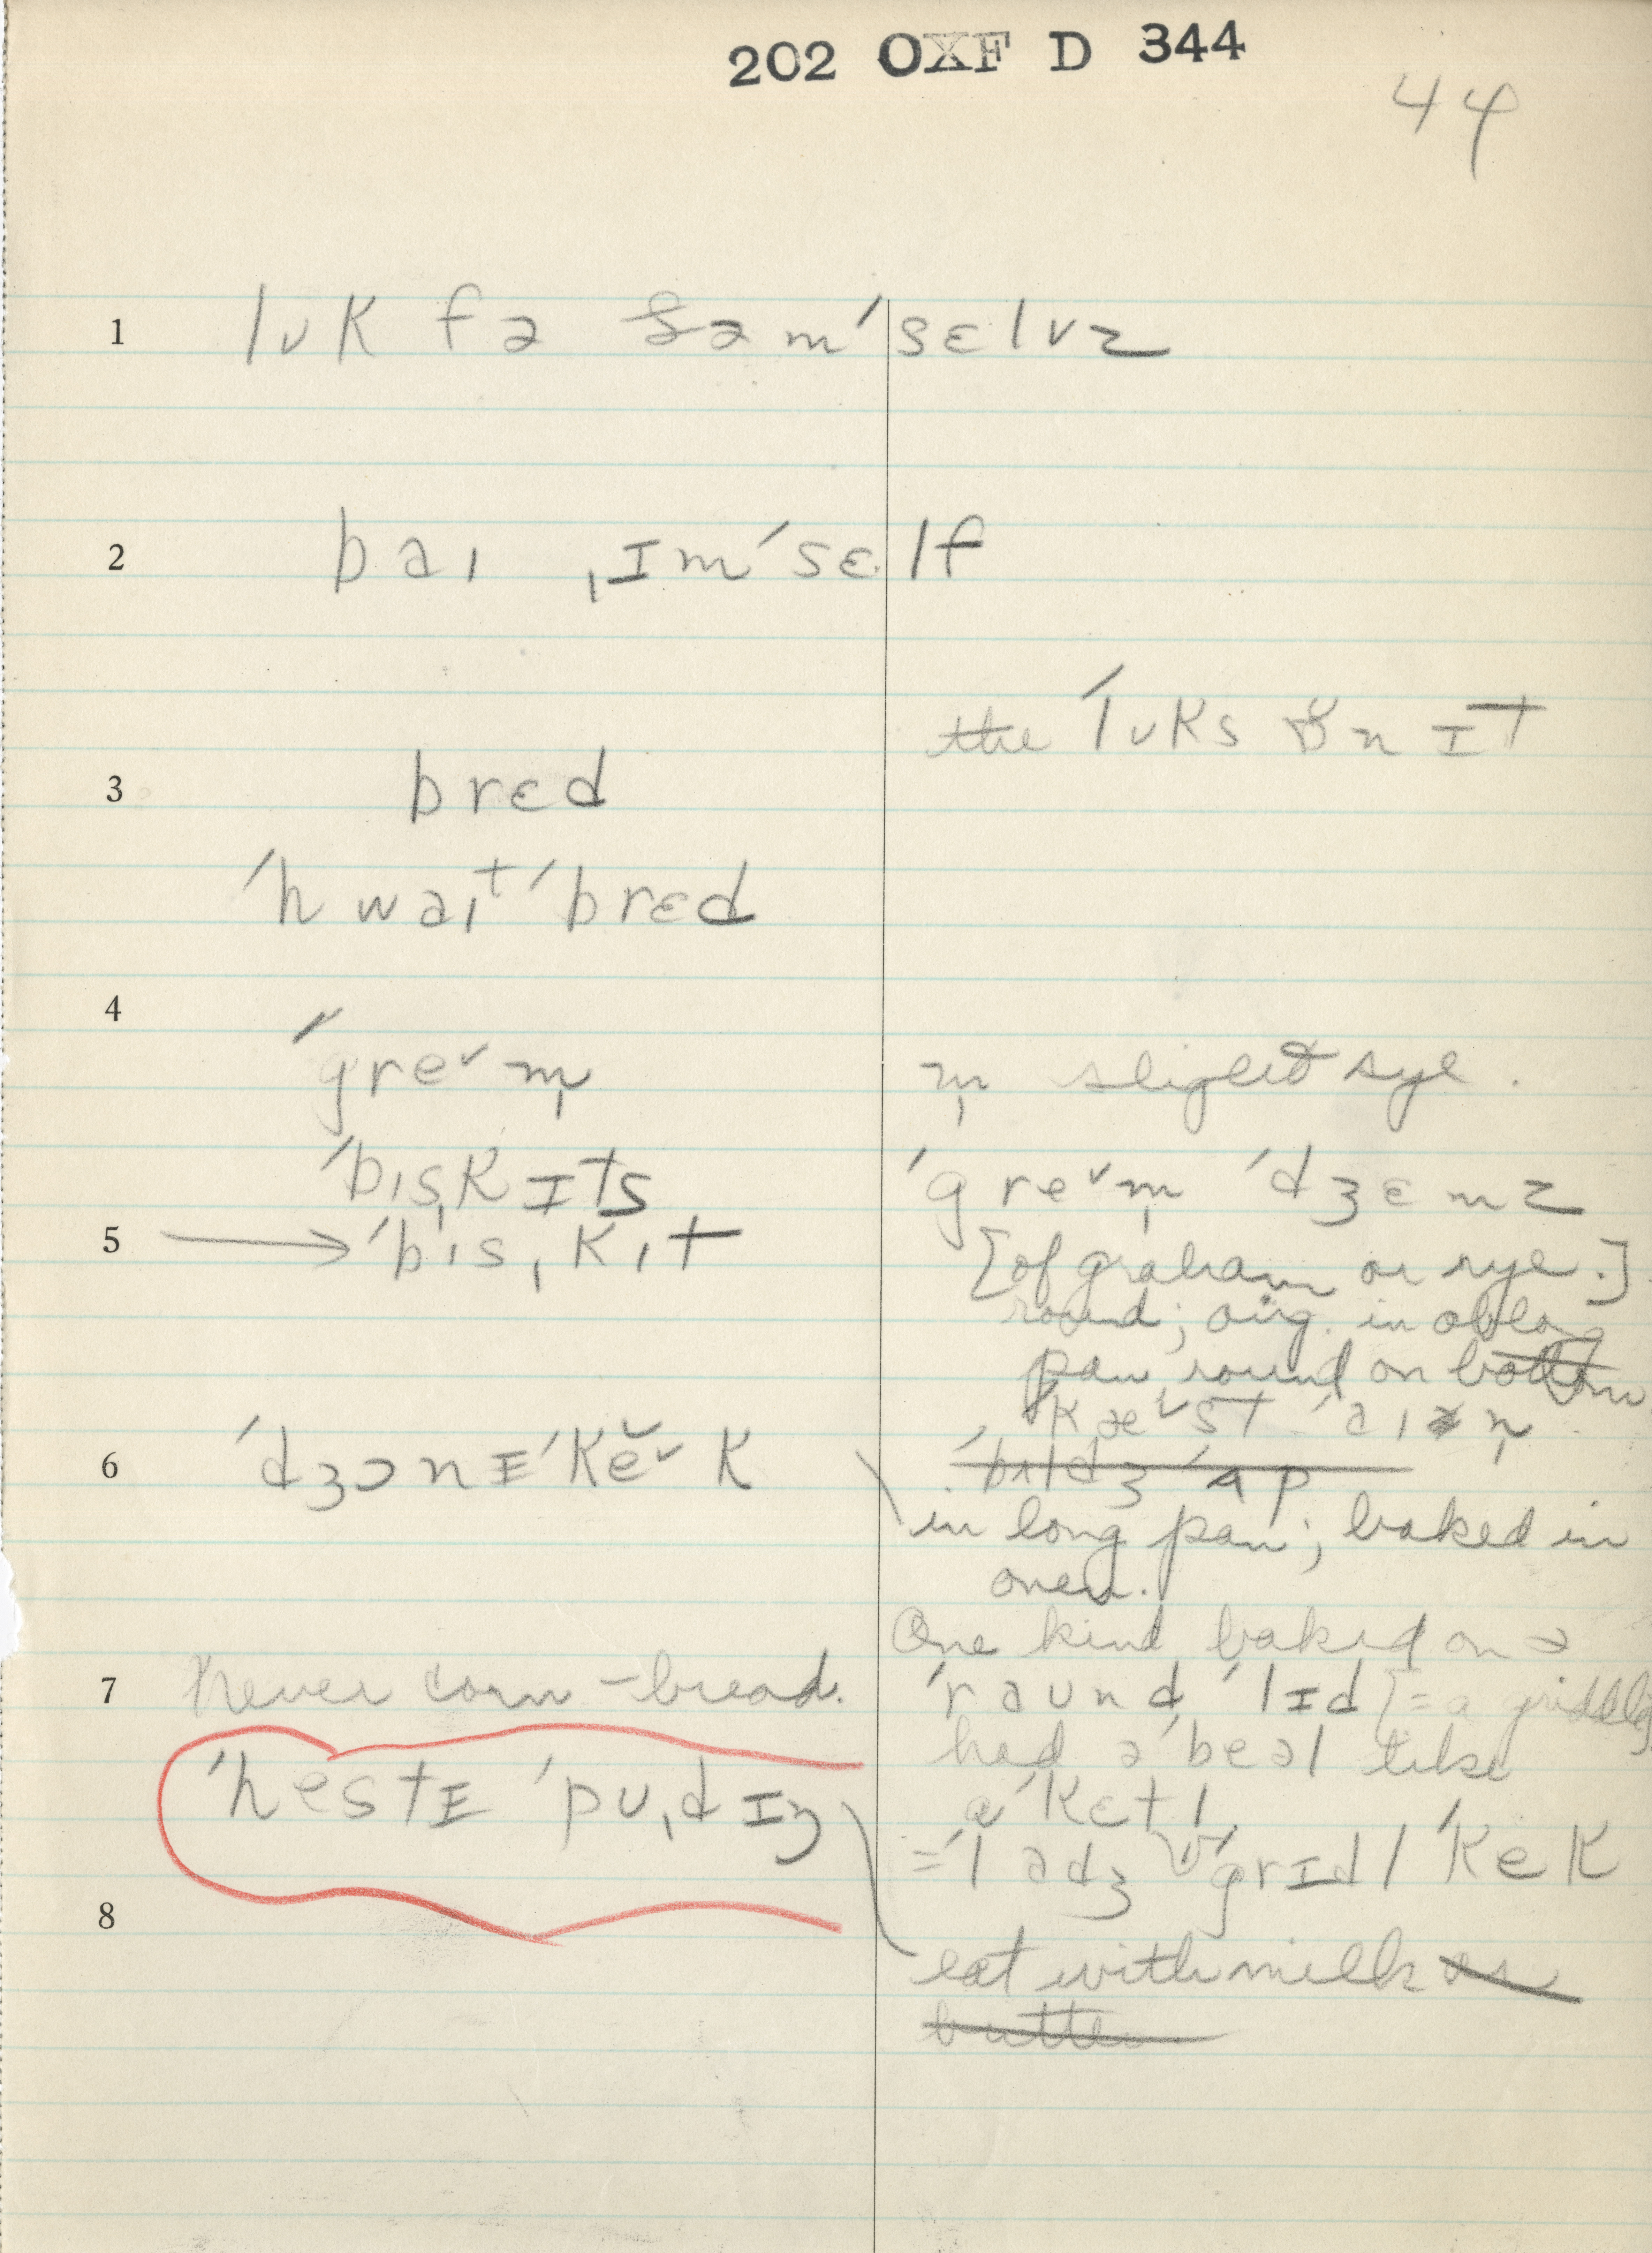 202 OXF D 344
44
1 lʊk fə ðəm ˈsɛlvz
2 baɪ ˌɪmˈsɛlf
the ˈlʊks ɒ̆n ɪt
3 brɛd
ˈhwaɪt ˈbrɛd
4
ˈgre˅m̩
m̩ slight syl.
ˈbɪs̩kɪts
ˈgre˅m̩ ˈdʒɛmz
5 → ˈbɪsˌkɪt
[of graham or rye.]
round; orig. in oblong
pan round on bottom
ˈkæ˅st ˈaɪən
6 ˈdʒɔnɪˈkĕ˅k
in long pan; baked in
oven.
One kind baked on ə
7 Never corn-bread.
ˈraʊnd ˈlɪd [= a griddle]
had ə ˈbeəl like
ə ˈkɛtl
ˈhestɪ ˈpʊˌdɪŋ
= ˈladʒ ˈgrɪdl ˈkek
8
eat with milk or
butter